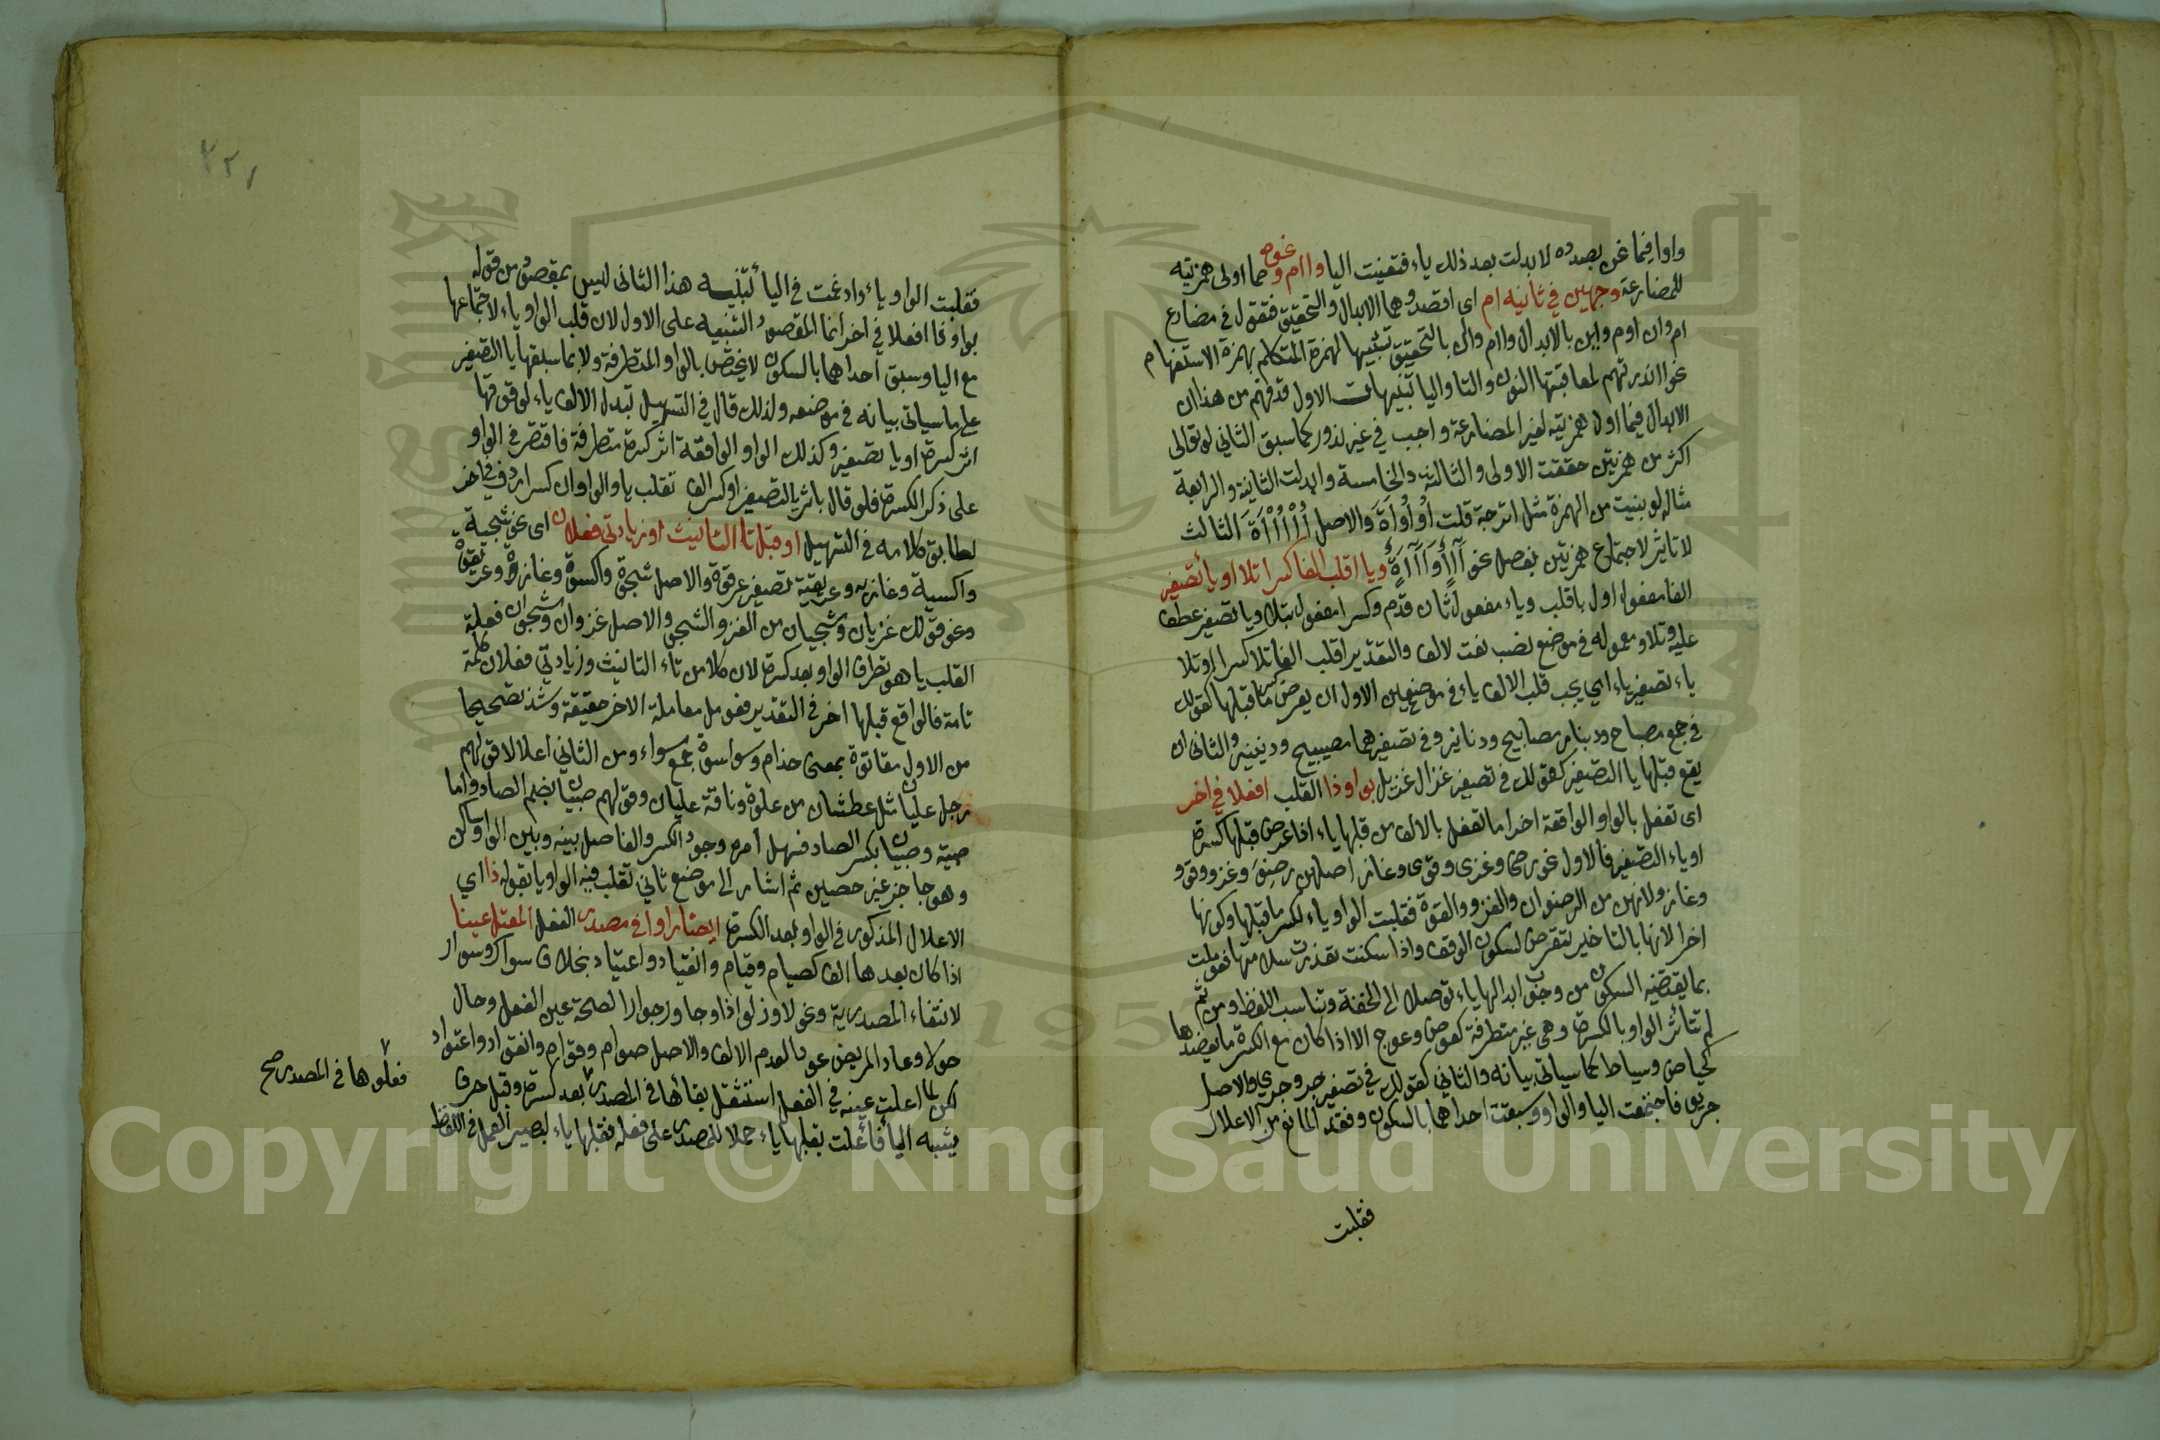 واوا فيما نحن بصدده لابدلت بعد ذلك ياء فتعينت اليا واأم ونحوه مما اولى همزتيه
للمضارعة وجهين في ثانيه ام اى اقصد وهما الابدال والتحقيق فتقول في مضارع
ام وان اوم واين بالابدال واام واان بالتحقيق تشبيها لهمزة المتكلم بهمزة الاستفهام
نحو اانذرتهم لمعاقبتها النون والتا واليا تنبيهات الاول قد فهم من هذا ان
الابدال فيما اولى همزتيه لغير المضارعة واجب في غير ندور كما سبق الثاني لو توالى
اكثر من همزتين حققت الاولى والثالثة والخامسة وابدلت الثانية والرابعة
مثاله لو بنيت من الهمزة مثل اترجة قلت أُوأُوأَة والاصل أُأْأُأْأَة الثالث
لا تاثير لاجتماع همزتين بفصل نحو
ويا اقلب الفا كسرا تلا او يا تصغير
الفا مفعول اول باقلب وياء مفعول ثان قدم وكسرا مفعول بتلا ويا تصغير عطف
عليه وتلا ومعموله في موضع نصب نعت لالف والتقدير اقلب الفا تلا كسرا او تلا
ياء تصغير ياء اي يجب قلب الالف ياء في موضعين الاول ان يعرض كسر ما قبلها كقولك
في جمع مصباح ودينار مصابيح ودنانير وفي تصغيرهما مصيبيح ودنينير والثاني ان
يقع قبلها يا التصغير كقولك في تصغير غزال غزيل بواو ذا القلب افعلا في اخر
اى تفعل بالواو الواقعة اخرا ما تفعل بالالف من قلبها ياء اذا عرض قبلها كسرة
او ياء التصغير فالاول نحو رضى وغزى وقوى وغاز اصلهن رضو وغزو وقوو
وغازو لانهن من الرضوان والغزو والقوة فقلبت الواو ياء لكسر ما قبلها وكونها
اخرا لانها بالتاخير تتعرض لسكون الوقف واذا سكنت تعذرت سلامتها فعوملت
بما يقتضيه السكون من وجوب ابدالها ياء توصلا الى الخفة وتناسب اللفظ ومن ثم
لم تتأثر الواو بالكسرة وهى غير متطرفة كعوض وعوج الا اذا كان مع الكسرة ما يعضدها
كحياض وسياط كما سياتي بيانه والثاني كقولك في تصغير جرو جري والاصل
جريو فاجتمعت اليا والواو وسبقت احداهما بالسكون وفقد المانع من الاعلال
فقلبت
٢٢١
فقلبت الواو ياء وادغمت في اليا تنبيه هذا الثانى ليس بمقصود من قوله
بواو ذا افعلا في اخر انما المقصود التنبيه على الاول لان قلب الواو ياء لاجتماعها
مع اليا وسبق احداهما بالسكون لا يختص بالواو المتطرفة ولا بما سبقها يا التصغير
على ما سياتى بيانه في موضعه ولذلك قال في التسهيل تبدل الالف ياء لوقوعها
اثر كسرة او يا تصغير وكذلك الواو الواقعة اثر كسرة متطرفة فاقتصر في الواو
على ذكر الكسرة فلو قال باثر يا التصغير او كسر الف تقلب يا والواو ان كسرا ردف في اخر
لطابق كلامه في التسهيل او قبل تا التانيث او زيادتى فعلان اى نحو شجية
واكسية وغازيه وعريقية تصغير عرقوة والاصل شجوة واكسوة وغازوة وعريقوة
ونحو قولك غزيان وشجيان من الغزو والشجو والاصل غزوان وشجوان فعلة
القلب يا هو تطرف الواو بعد كسرة لان كلا من تاء التانيث وزيادتي فعلان كلمة
تامة فالواقع قبلها اخر في التقدير فعومل معاملة الاخر حقيقة وشذ تصحيحا
من الاول مقاتوة بمعنى خدام وسواسوة جمع سواء ومن الثاني اعلالا قولهم
رجل عليان مثل عطشان من علوة وناقة عليان وقولهم صبيان بضم الصاد واما
صبية وصبيان بكسر الصاد فسهل امره وجود الكسر والفاصل بينه وبين الواو ساكن
وهو حاجز غير حصين ثم اشار الى موضع ثاني تقلب فيه الواو يا بقوله ذا اي
الاعلال المذكور في الواو بعد الكسرة ايضا راوا في مصدر الفعل المعتل عينا
اذا كان بعدها الف كصيام وقيام وانقياد واعتياد بخلاف سواك وسوار
لانتفاء المصدرية ونحو لاوذ لواذا وجاور جوارا لصحة عين الفعل وحال
حولا وعاد المريض عودا لعدم الالف والاصل صوام وقوام وانقواد واعتواد
لكن لما اعلت عينه في الفعل استثقل بقاؤها في المصدر بعد كسرة وقبل حرف
يشبه اليا فأعلت بقلبها ياء حملا للمصدر على فعله فقلبها ياء ليصير العمل في اللفظ
فعلوها في المصدر صح
Copyright © King Saud University
1957